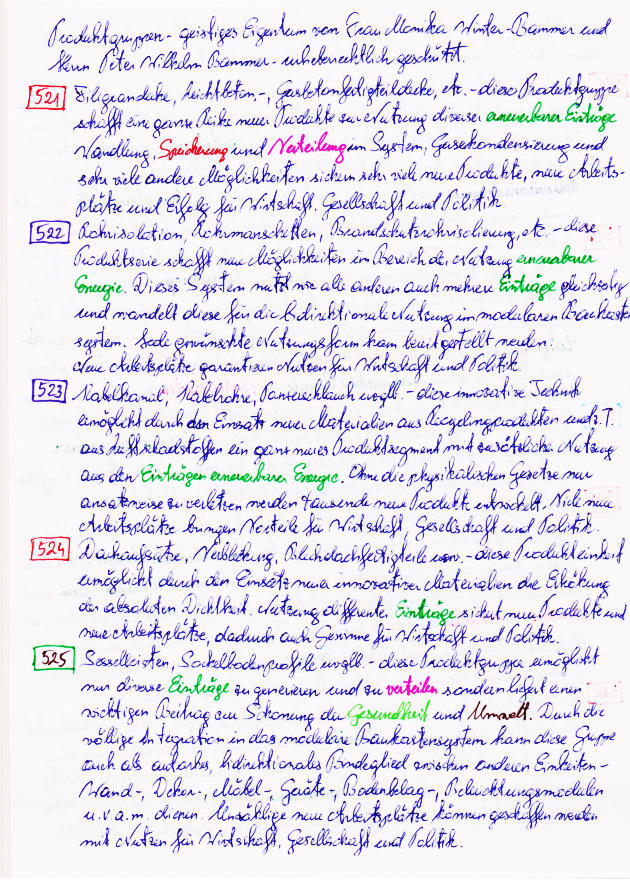 Produktgruppen - geistiges Eigentum von Frau Monika Winter-Bammer und
Herrn Peter Wilhelm Bammer - urheberrechtlich geschützt.
521 Filigrandecke, Leichtbeton-, Gasbetonfertigteildecke, etc. - diese Produktgruppe
schafft eine ganze Reihe neuer Produkte zur Nutzung diverser erneuerbarer Einträge
Wandlung, Speicherung und Verteilung im System, Gaskondensierung und
sehr viele andere Möglichkeiten sichern sehr viele neue Produkte, neue Arbeits-
plätze und Erfolg für Wirtschaft, Gesellschaft und Politik
522 Rohrisolation, Rohrmanschetten, Brandschutzrohrisolierung, etc. - diese
Produktserie schafft neue Möglichkeiten im Bereich der Nutzung erneuerbarer
Energie. Dieses System nutzt wie alle anderen auch mehrere Einträge gleichzeitig
und wandelt diese für die bidirektionale Nutzung im modularen Baukasten-
system. Jede gewünschte Nutzungsform kann bereitgestellt werden.
Neue Arbeitsplätze garantieren Nutzen für Wirtschaft und Politik.
523 Kabelkanal, Kabelrohre, Panzerschlauch uvglb. - diese innovative Technik
ermöglicht durch den Einsatz neuer Materialien aus Recyclingprodukten und z.T.
aus Luftschadstoffen ein ganz neues Produktsegment mit zusätzlicher Nutzung
aus den Einträgen erneuerbarer Energie. Ohne die physikalischen Gesetze nur
ansatzweise zu verletzen werden tausende neue Produkte entwickelt. Viele neue
Arbeitsplätze bringen Vorteile für Wirtschaft, Gesellschaft und Politik.
524 Dachaufsätze, Verblechung, Blechdachfertigteile usw. - diese Produkteinheit
ermöglicht durch den Einsatz neuer innovativer Materialien die Erhöhung
der absoluten Dichtheit. Nutzung differenter Einträge sichert neue Produkte und
neue Arbeitsplätze, dadurch auch Gewinne für Wirtschaft und Politik.
525 Sesselleisten, Sockelbodenprofile uvglb. - diese Produktgruppe ermöglicht
nur diverse Einträge zu generieren und zu verteilen sondern liefert einen
wichtigen Beitrag zur Schonung der Gesundheit und Umwelt. Durch die
völlige Integration in das modulare Baukastensystem kann diese Gruppe
auch als autarkes, bidirektionales Bindeglied zwischen anderen Einheiten -
Wand-, Decken-, Möbel-, Geräte-, Bodenbelag-, Beleuchtungsmodulen
u.v.a.m. dienen. Unzählige neue Arbeitsplätze können geschaffen werden
mit Nutzen für Wirtschaft, Gesellschaft und Politik.